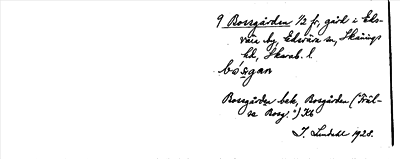 9 Bossgården 1/2 fr, gård i Eks-
vära by, Edsvära sn, Skånings
hd, Skarab. l.
bósgan
Bosgården bek, Bosgården ("Fräl-
se Bosg.")
J. Lindahl 1928.